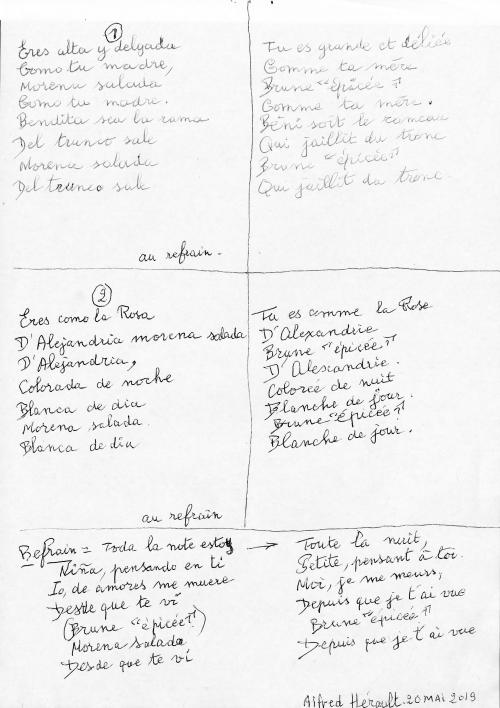 1
Eres alta y delgada
Como tu madre,
Morena salada
Como tu madre.
Bendita sea la rama
Del trunco sale
Morena salada
Del trunco sale
au refrain.
Tu es grande et déliée
Comme ta mère
Brune "épicée"
Comme ta mère.
Béni soit le rameau
Qui jaillit du tronc
Brune "épicée"
Qui jaillit du tronc.
2
Eres como la Rosa
D'Alejandria morena salada
D'Alejandria,
Colorada de noche
Blanca de dia
Morena salada.
Blanca de dia
au refrain
Tu es comme la Rose
D'Alexandrie
Brune "épicée"
D'Alexandrie.
Colorée de nuit
Blanche de jour.
Brune "épicée"
Blanche de jour.
Refrain = Toda la note estoy →
Niña, pensando en ti
Io, de amores me muere
Desde que te vi
(Brune "épicée")
Morena salada
Desde que te vi
Toute la nuit,
Petite, pensant à toi.
Moi, je me meurs,
Depuis que je t'ai vue
Brune "épicée"
Depuis que je t'ai vue
Alfred Hérault. 20 MAI 2019